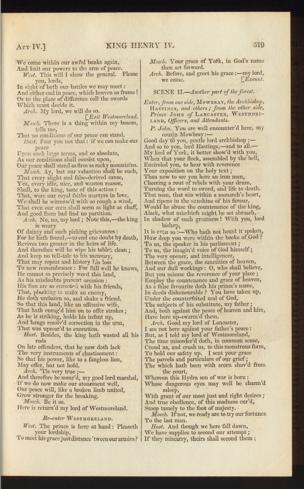 ACT IV.]
KING HENRY IV.
519
We come within our awful banks again,
And knit our powers to the arm of peace.
West. This will I show the general. Please
you, lords,
In sight of both our battles we may meet:
And either end in peace, which heaven so frame!
Or to the place of difference call the swords
Which must decide it.
Arch. My lord, we will do so.
[Exit Westmoreland.
Mowb. There is a thing within my bosom,
tells me,
That no conditions of our peace can stand.
Hast. Fear you not that: if we can make our
peace
Upon such large terms, and so absolute,
As our conditions shall consist upon,
Our peace shall stand as firm as rocky mountains.
Mowb. Ay, but our valuation shall be such,
That every slight and false-derived cause,
Yea, every idle, nice, and wanton reason,
Shall, to the king, taste of this action:
That, were our royal faiths martyrs in love,
We shall be winnow'd with so rough a wind,
That even our corn shall seem as light as chaff,
And good from bad find no partition.
Arch. No, no, my lord; Note this,—the king
is weary
Of dainty and such picking grievances:
For he hath found,—to end one doubt by death,
Revives two greater in the heirs of life.
And therefore will he wipe his tables clean;
And keep no tell-tale to his memory,
That may repeat and history his loss
To new remembrance: For full well he knows,
He cannot so precisely weed this land,
As his misdoubts present occasion:
His foes are so enrooted with his friends,
That, plucking to unfix an enemy,
He doth unfasten so, and shake a friend.
So that this land, like an offensive wife,
That hath enrag'd him on to offer strokes;
As he is striking, holds his infant up,
And hangs resolv'd correction in the arm,
That was uprear'd to execution.
Hast. Besides, the king hath wasted all his
rods
On late offenders, that he now doth lack
The very instruments of chastisement:
So that his power, like to a fangless lion,
May offer, but not hold.
Arch. 'Tis very true:—
And therefore be assur'd, my good lord marshal,
If we do now make our atonement well,
Our peace will, like a broken limb united,
Grow stronger for the breaking.
Mowb. Be it so.
Here is return'd my lord of Westmoreland.
Re-enter WESTMORELAND.
West. The prince is here at hand: Pleaseth
your lordship,
To meet his grace just distance 'tween our armies?
Mowb. Your grace of York, in God's name
then set forward.
Arch. Before, and greet his grace:—my lord,
we come. [Exeunt.
SCENE II.—Another part of the forest.
Enter, from one side, MOWBRAY, the Archbishop,
HASTINGS, and others; from the other side,
Prince JOHN of LANCASTER, WESTMORE-
LAND, Officers, and Attendants.
P. John. You are well encounter'd here, my
cousin Mowbray:—
Good day to you, gentle lord archbishop;—
And so to you, lord Hastings,—and to all.—
My lord of York, it better show'd with you,
When that your flock, assembled by the bell,
Encircled you, to hear with reverence
Your exposition on the holy text;
Than now to see you here an iron man,
Cheering a rout of rebels with your drum,
Turning the word to sword, and life to death.
That man, that sits within a monarch's heart,
And ripens in the sunshine of his favour,
Would he abuse the countenance of the king,
Alack, what mischiefs might he set abroach,
In shadow of such greatness! With you, lord
bishop,
It is even so:—Who hath not heard it spoken,
How deep you were within the books of God?
To us, the speaker in his parliament;
To us, the imagin'd voice of God himself;
The very opener, and intelligencer,
Between the grace, the sanctities of heaven,
And our dull workings: O, who shall believe,
But you misuse the reverence of your place;
Employ the countenance and grace of heaven,
As a false favourite doth his prince's name,
In deeds dishonourable? You have taken up,
Under the counterfeited zeal of God,
The subjects of his substitute, my father;
And, both against the peace of heaven and him,
Have here up-swarm'd them.
Arch. Good my lord of Lancaster,
I am not here against your father's peace:
But, as I told my lord of Westmoreland,
The time misorder'd doth, in common sense,
Crowd us, and crush us, to this monstrous form,
To hold our safety up. I sent your grace
The parcels and particulars of our grief;
The which hath been with scorn shov'd from
the court,
Whereon this Hydra son of war is born:
Whose dangerous eyes may well be charm'd
asleep,
With grant of our most just and right desires;
And true obedience, of this madness cur'd,
Stoop tamely to the foot of majesty.
Mowb. If not, we ready are to try our fortunes
To the last man.
Hast. And though we here fall down,
We have supplies to second our attempt;
If they miscarry, theirs shall second them;